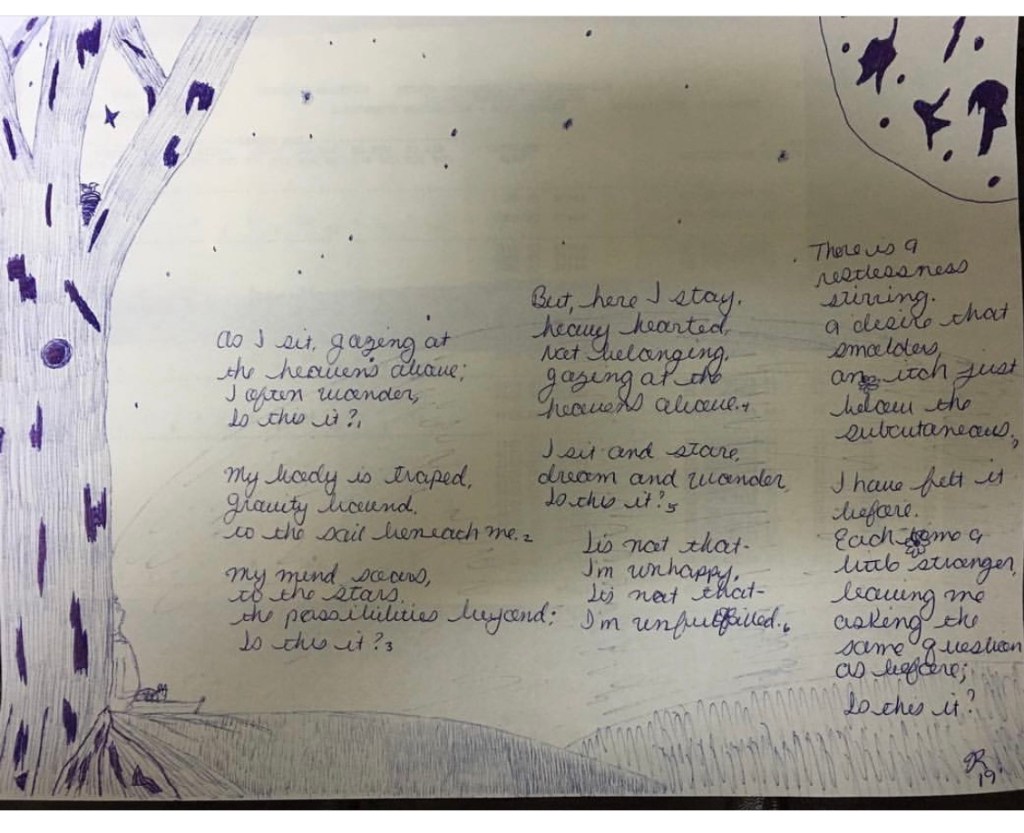 As I sit, gazing at
the heavens above;
I often wonder,
Is this it?,
My body is traped,
gravity bound,
to the soil beneath me.2
My mind soars,
to the stars,
the possibilities beyond;
Is this it?3
But, here I stay,
heavy hearted,
not belonging,
gazing at the
heavens above.4
I sit and stare,
dream and wonder,
Is this it?5
Its not that-
I'm unhappy,
Its not that-
I'm unfulfilled.6
There is a
restlessness
stirring.
a desire that
smolders,
an itch just
below the
subcutaneous,
I have felt it
before.
Each time a
little stronger,
leaving me
asking the
same question
as before;
Is this it?
19.